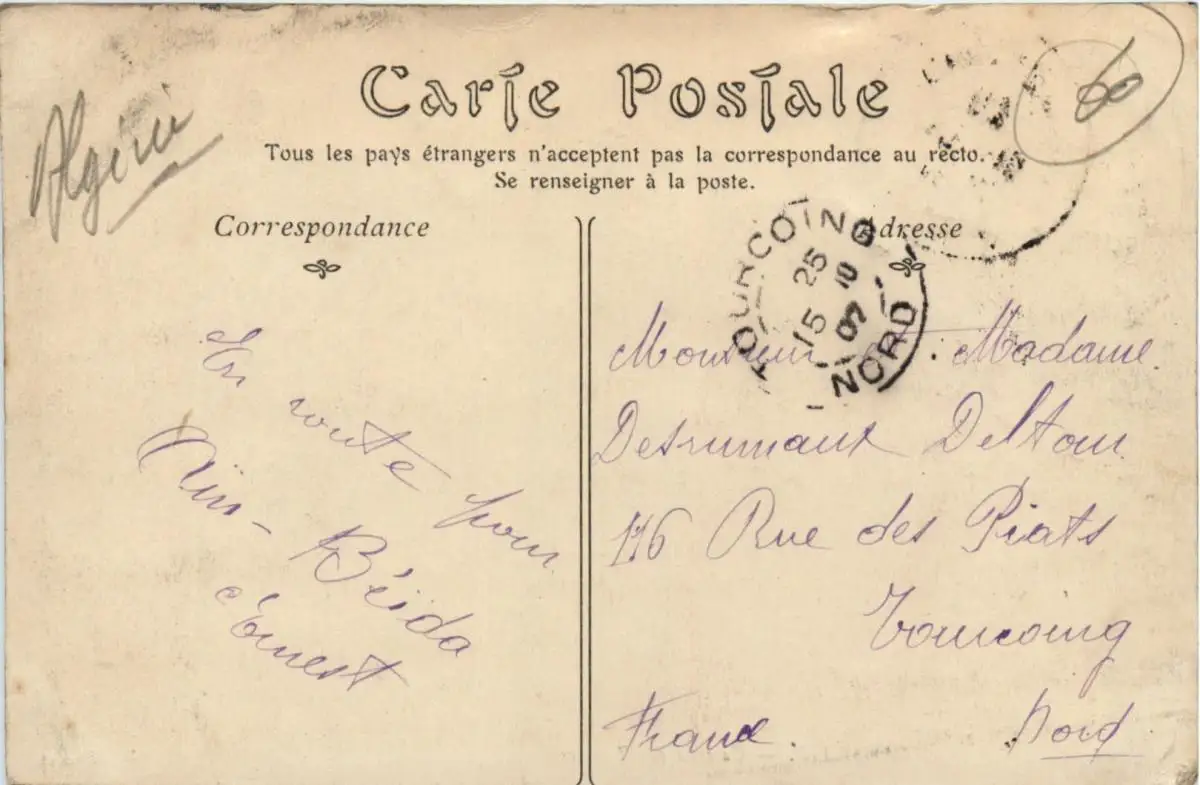 Carte Postale
Tous les pays étrangers n'acceptent pas la correspondance au recto.
Se renseigner à la poste.
Algérie
6
Correspondance
Adresse
TOURCOING
15 25
10
07
NORD
En route pour
Aïn-Béida
Ernest
Monsieur et Madame
Desrumaux Deltour
116 Rue des Piats
Tourcoing
France. Nord